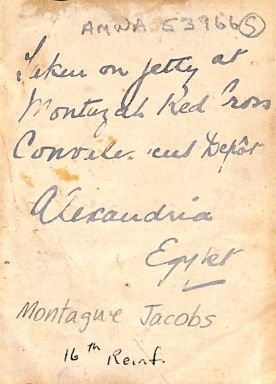 AMWA 53966 S
Taken on jetty at
Montazah Red Cross
Convales cent Depôt
Alexandria
Egypt
Montague Jacobs
16th Reinf.